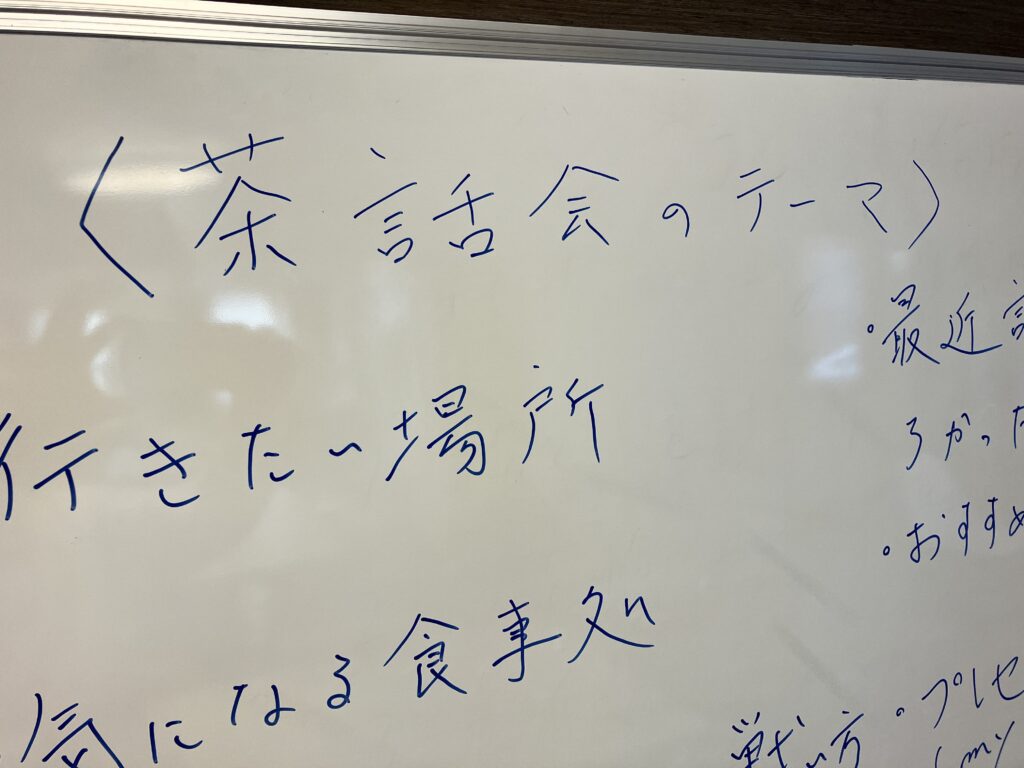 〈茶話会のテーマ〉
行きたい場所
気になる食事処
・最近
ろかった
・おすすめ
・プレゼ
戦い方